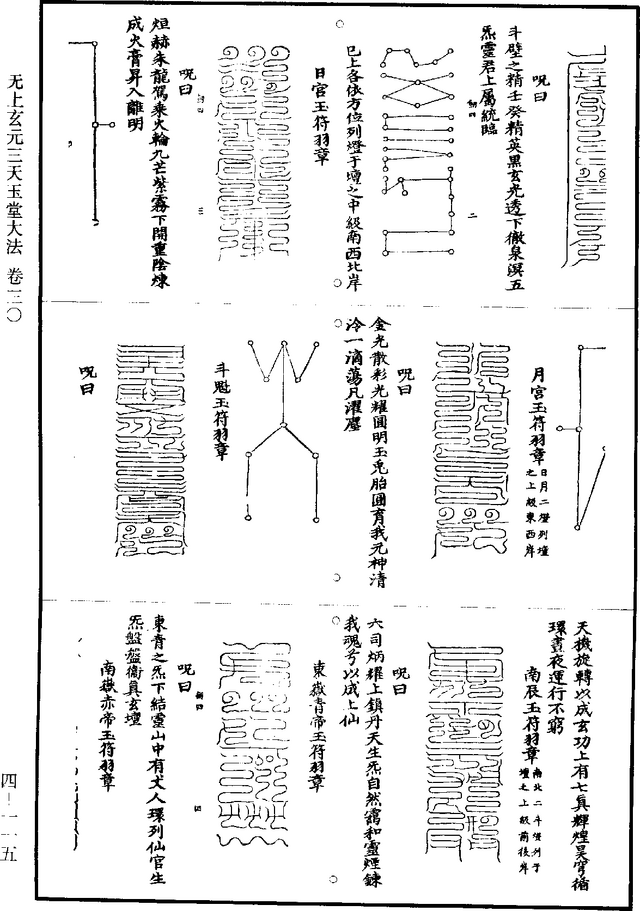 无上玄元三天玉堂大法 卷三〇
四—一一五
呪曰
斗壁之精壬癸精英黑玄光透下徹泉溟五
炁靈君上屬統臨
制四
二
已上各依方位列燈于壇之中級南西北岸
日宮玉符羽章
制四
三
呪曰
烜赫朱龍駕乘火輪九芒紫霧下開重陰煉
成火膏昇入離明
月宮玉符羽章 日月二燈列壇之上級東西岸
呪曰
金光散彩光耀圓明玉兎胎圓育我元神清
泠一滴蕩凡濯塵
斗魁玉符羽章
呪曰
天機旋轉以成玄功上有七真輝煌昊穹循
環晝夜運行不窮
南辰玉符羽章 南北二斗燈列于壇之上級前後岸
呪曰
六司炳耀上鎮丹天生炁自然靄和靈煙鍊
我魂兮以成上仙
東嶽青帝玉符羽章
制四
四
呪曰
東青之炁下結靈山中有丈人環列仙官生
炁盤盤衛真玄壇
南嶽赤帝玉符羽章